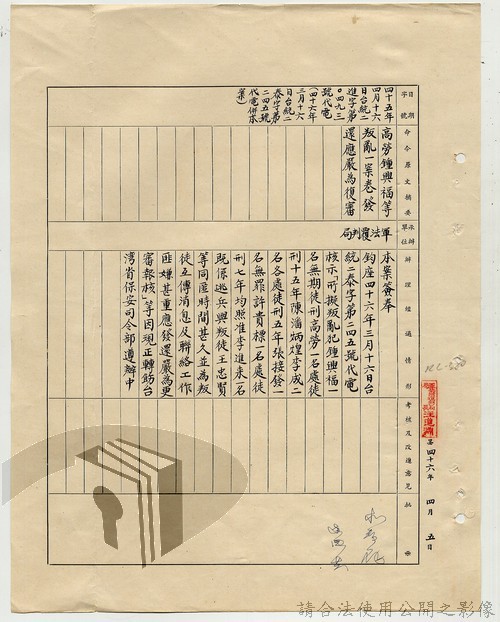 日期
字號
命令原文摘要
承辦單位
辦理經過情形
考核及改進意見
批示
四十五年
四月十六
日台統二
進字第
〇四九三
號代電
(四十六年
三月十六
日台統二
泰字第
二四五號
代電併本
案)
高勞鍾興福等
叛亂一案卷發
還應嚴為復審
軍法覆判局
本案簽奉
鈞座四十六年三月十六日台
統二泰字第二四五號代電
核示「所擬叛亂犯鍾興福一
名無期徒刑高勞一名處徒
刑十五年陳潘炳煌李成二
名各處徒刑五年張接發一
名無罪許貴標一名處徒
刑七年均照准李進來一名
既係逃兵與叛徒王忠賢
等同匿時間甚久並為叛
徒互傳消息及聯絡工作
匪嫌甚重應發還嚴為更
審報核」等因現正轉飭台
灣省保安司令部遵辦中
四十六年 四月 五日
請合法使用公開之影像